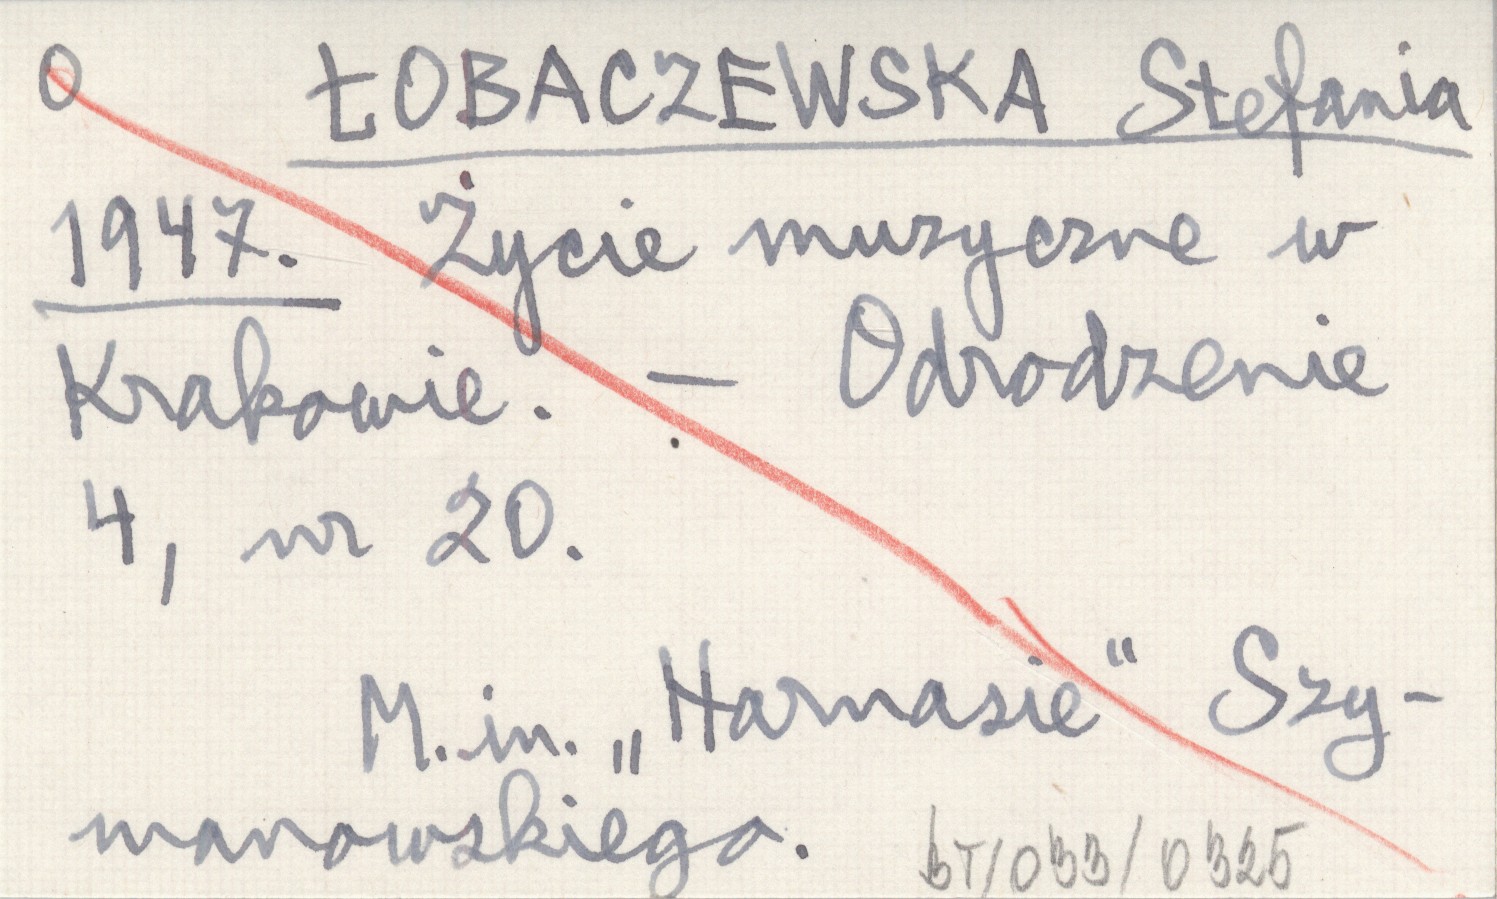 O ŁOBACZEWSKA Stefania
1947. Życie muzyczne w
Krakowie. — Odrodzenie
4, nr 20.
M. in. „Harnasie" Szy-
manowskiego.
bT/033/0325